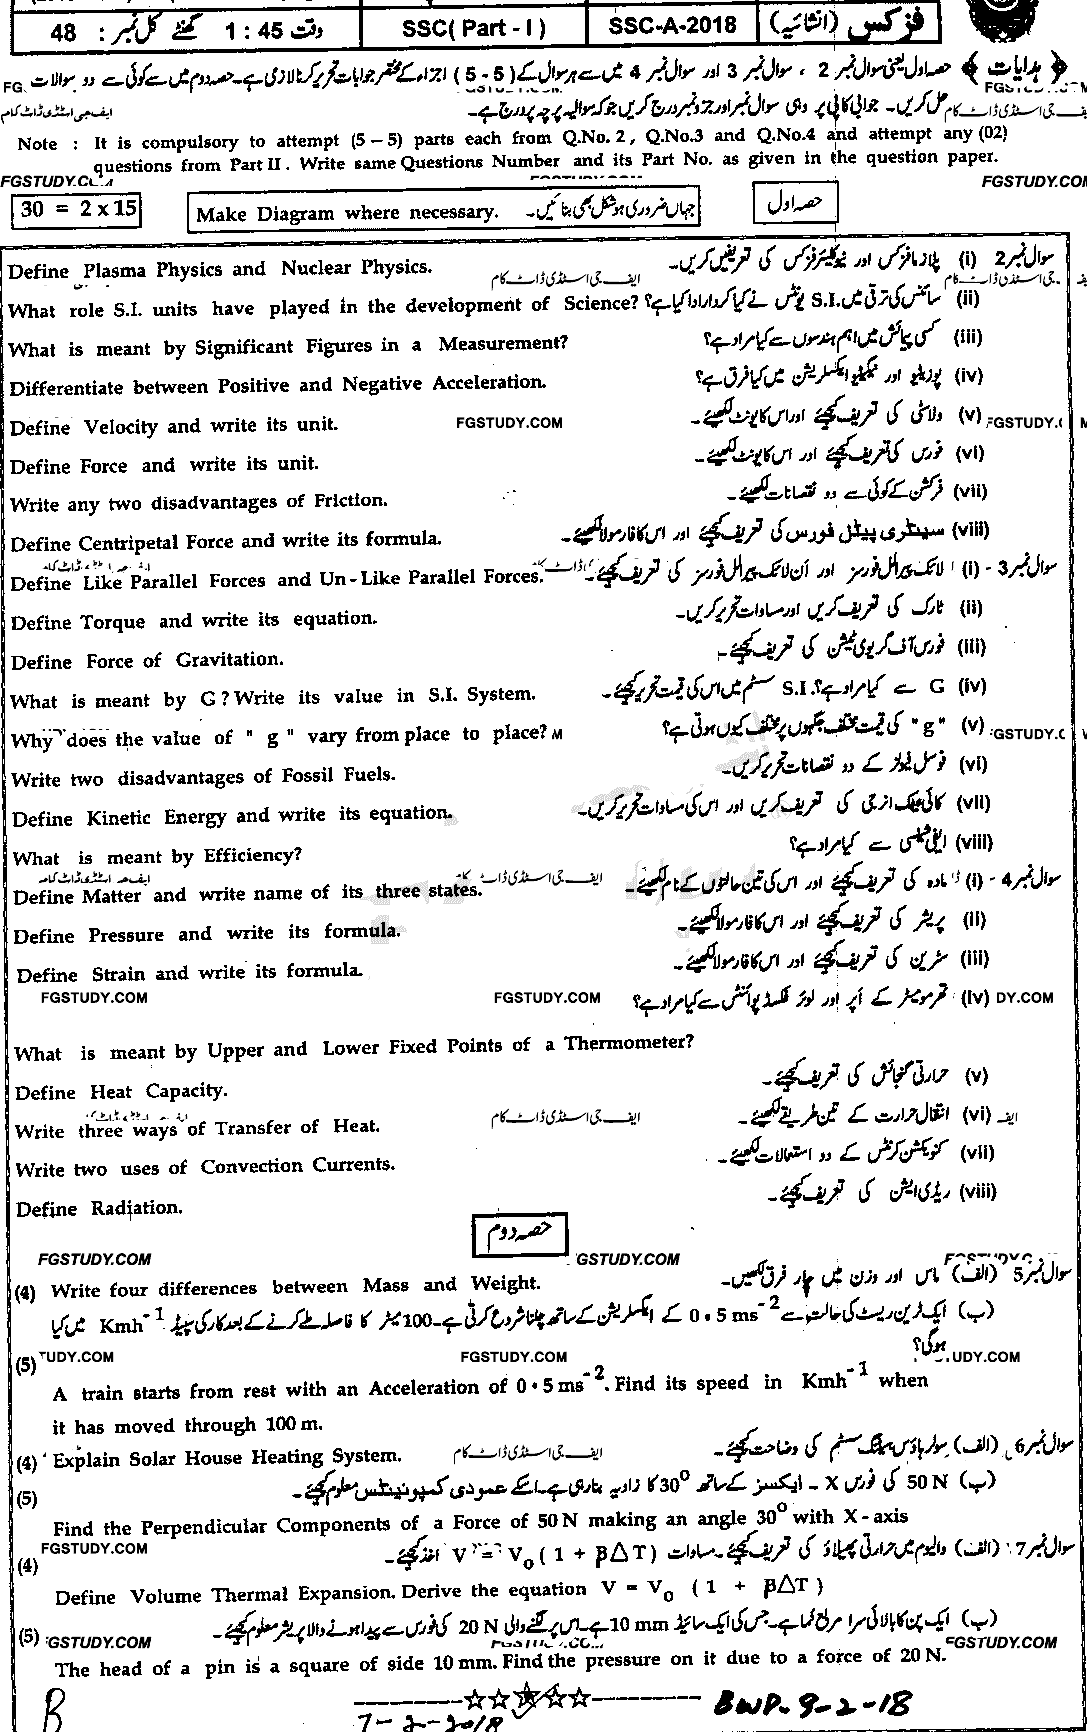 فزکس (انشائیہ) SSC-A-2018 SSC( Part - I ) وقت 1 : 45 گھنٹے کل نمبر : 48
﴿ ہدایات ﴾ حصہ اول یعنی سوال نمبر 2 ، سوال نمبر 3 اور سوال نمبر 4 میں سے ہر سوال کے ( 5 - 5 ) اجزاء کے مختصر جوابات تحریر کرنا لازمی ہے۔ حصہ دوم میں سے کوئی سے دو سوالات
حل کریں۔ جوابی کاپی پر وہی سوال نمبر اور جز نمبر درج کریں جو کہ سوالیہ پرچہ پر درج ہے۔
ایف جی اسٹڈی ڈاٹ کام
Note : It is compulsory to attempt (5 – 5) parts each from Q.No. 2 , Q.No.3 and Q.No.4 and attempt any (02)
questions from Part II . Write same Questions Number and its Part No. as given in the question paper.
FGSTUDY.COM
30 = 2 x 15 Make Diagram where necessary. جہاں ضروری ہو شکل بھی بنائیں۔ حصہ اول
سوال نمبر 2 (i) پلازما فزکس اور نیوکلیئر فزکس کی تعریفیں کریں۔
Define Plasma Physics and Nuclear Physics.
ایف جی اسٹڈی ڈاٹ کام
What role S.I. units have played in the development of Science? سائنس کی ترقی میں S.I. یونٹس نے کیا کردار ادا کیا ہے؟ (ii)
What is meant by Significant Figures in a Measurement? کسی پیمائش میں اہم ہندسوں سے کیا مراد ہے؟ (iii)
Differentiate between Positive and Negative Acceleration. پوزیٹو اور نیگیٹو ایکسلریشن میں کیا فرق ہے؟ (iv)
Define Velocity and write its unit. FGSTUDY.COM ولاسٹی کی تعریف کیجئے اور اس کا یونٹ لکھیئے۔ (v)
Define Force and write its unit. فورس کی تعریف کیجئے اور اس کا یونٹ لکھیئے۔ (vi)
Write any two disadvantages of Friction. فرکشن کے کوئی سے دو نقصانات لکھیئے۔ (vii)
Define Centripetal Force and write its formula. سینٹری پیٹل فورس کی تعریف کیجئے اور اس کا فارمولا لکھیئے۔ (viii)
Define Like Parallel Forces and Un-Like Parallel Forces. لائک پیرالل فورسز اور اَن لائک پیرالل فورسز کی تعریف کیجئے۔ (i) - سوال نمبر 3
Define Torque and write its equation. ٹارک کی تعریف کریں اور مساوات تحریر کریں۔ (ii)
Define Force of Gravitation. فورس آف گریوی ٹیشن کی تعریف کیجئے۔ (iii)
What is meant by G ? Write its value in S.I. System. G سے کیا مراد ہے؟ S.I. سسٹم میں اس کی قیمت تحریر کیجئے۔ (iv)
Why does the value of " g " vary from place to place? "g" کی قیمت مختلف جگہوں پر مختلف کیوں ہوتی ہے؟ (v)
Write two disadvantages of Fossil Fuels. فوسل فیولز کے دو نقصانات تحریر کریں۔ (vi)
Define Kinetic Energy and write its equation. کائی نیٹک انرجی کی تعریف کریں اور اس کی مساوات تحریر کریں۔ (vii)
What is meant by Efficiency? ایفی شینسی سے کیا مراد ہے؟ (viii)
Define Matter and write name of its three states. مادہ کی تعریف کیجئے اور اس کی تین حالتوں کے نام لکھیئے۔ (i) - سوال نمبر 4
Define Pressure and write its formula. پریشر کی تعریف کیجئے اور اس کا فارمولا لکھیئے۔ (ii)
Define Strain and write its formula. سٹرین کی تعریف کیجئے اور اس کا فارمولا لکھیئے۔ (iii)
FGSTUDY.COM FGSTUDY.COM تھرمومیٹر کے اَپر اور لوئر فکسڈ پوائنٹس سے کیا مراد ہے؟ (iv) DY.COM
What is meant by Upper and Lower Fixed Points of a Thermometer?
Define Heat Capacity. حرارتی گنجائش کی تعریف کیجئے۔ (v)
Write three ways of Transfer of Heat. ایف جی اسٹڈی ڈاٹ کام انتقال حرارت کے تین طریقے لکھیئے۔ (vi)
Write two uses of Convection Currents. کنویکشن کرنٹس کے دو استعمالات لکھیئے۔ (vii)
Define Radiation. ریڈی ایشن کی تعریف کیجئے۔ (viii)
حصہ دوم
FGSTUDY.COM GSTUDY.COM
(4) Write four differences between Mass and Weight. سوال نمبر 5 (الف) ماس اور وزن میں چار فرق لکھیں۔
(ب) ایک ٹرین ریسٹ کی حالت سے 0.5 ms⁻² کے ایکسلریشن کے ساتھ چلنا شروع کرتی ہے۔ 100 میٹر کا فاصلہ طے کرنے کے بعد کار کی سپیڈ Kmh⁻¹ میں کیا
ہوگی؟
(5) TUDY.COM FGSTUDY.COM UDY.COM
A train starts from rest with an Acceleration of 0.5 ms⁻². Find its speed in Kmh⁻¹ when
it has moved through 100 m.
(4) Explain Solar House Heating System. ایف جی اسٹڈی ڈاٹ کام سوال نمبر 6 (الف) سولر ہاؤس ہیٹنگ سسٹم کی وضاحت کیجئے۔
(5) (ب) 50 N کی فورس X - ایکسز کے ساتھ 30° کا زاویہ بنا رہی ہے۔ اسکے عمودی کمپونینٹس معلوم کیجئے۔
Find the Perpendicular Components of a Force of 50 N making an angle 30° with X-axis
(4) FGSTUDY.COM سوال نمبر 7 (الف) والیوم میں حرارتی پھیلاؤ کی تعریف کیجئے۔ مساوات V = V₀ ( 1 + β∆T ) اخذ کیجئے۔
Define Volume Thermal Expansion. Derive the equation V = V₀ ( 1 + β∆T )
(ب) ایک پن کا بالائی سرا مربع نما ہے۔ جس کی ایک سائیڈ 10 mm ہے۔ اس پر لگنے والی 20 N کی فورس سے پیدا ہونے والا پریشر معلوم کیجئے۔
(5) GSTUDY.COM FGSTUDY.COM FGSTUDY.COM
The head of a pin is a square of side 10 mm. Find the pressure on it due to a force of 20 N.
B 7-2-2018 BWP-9-2-18